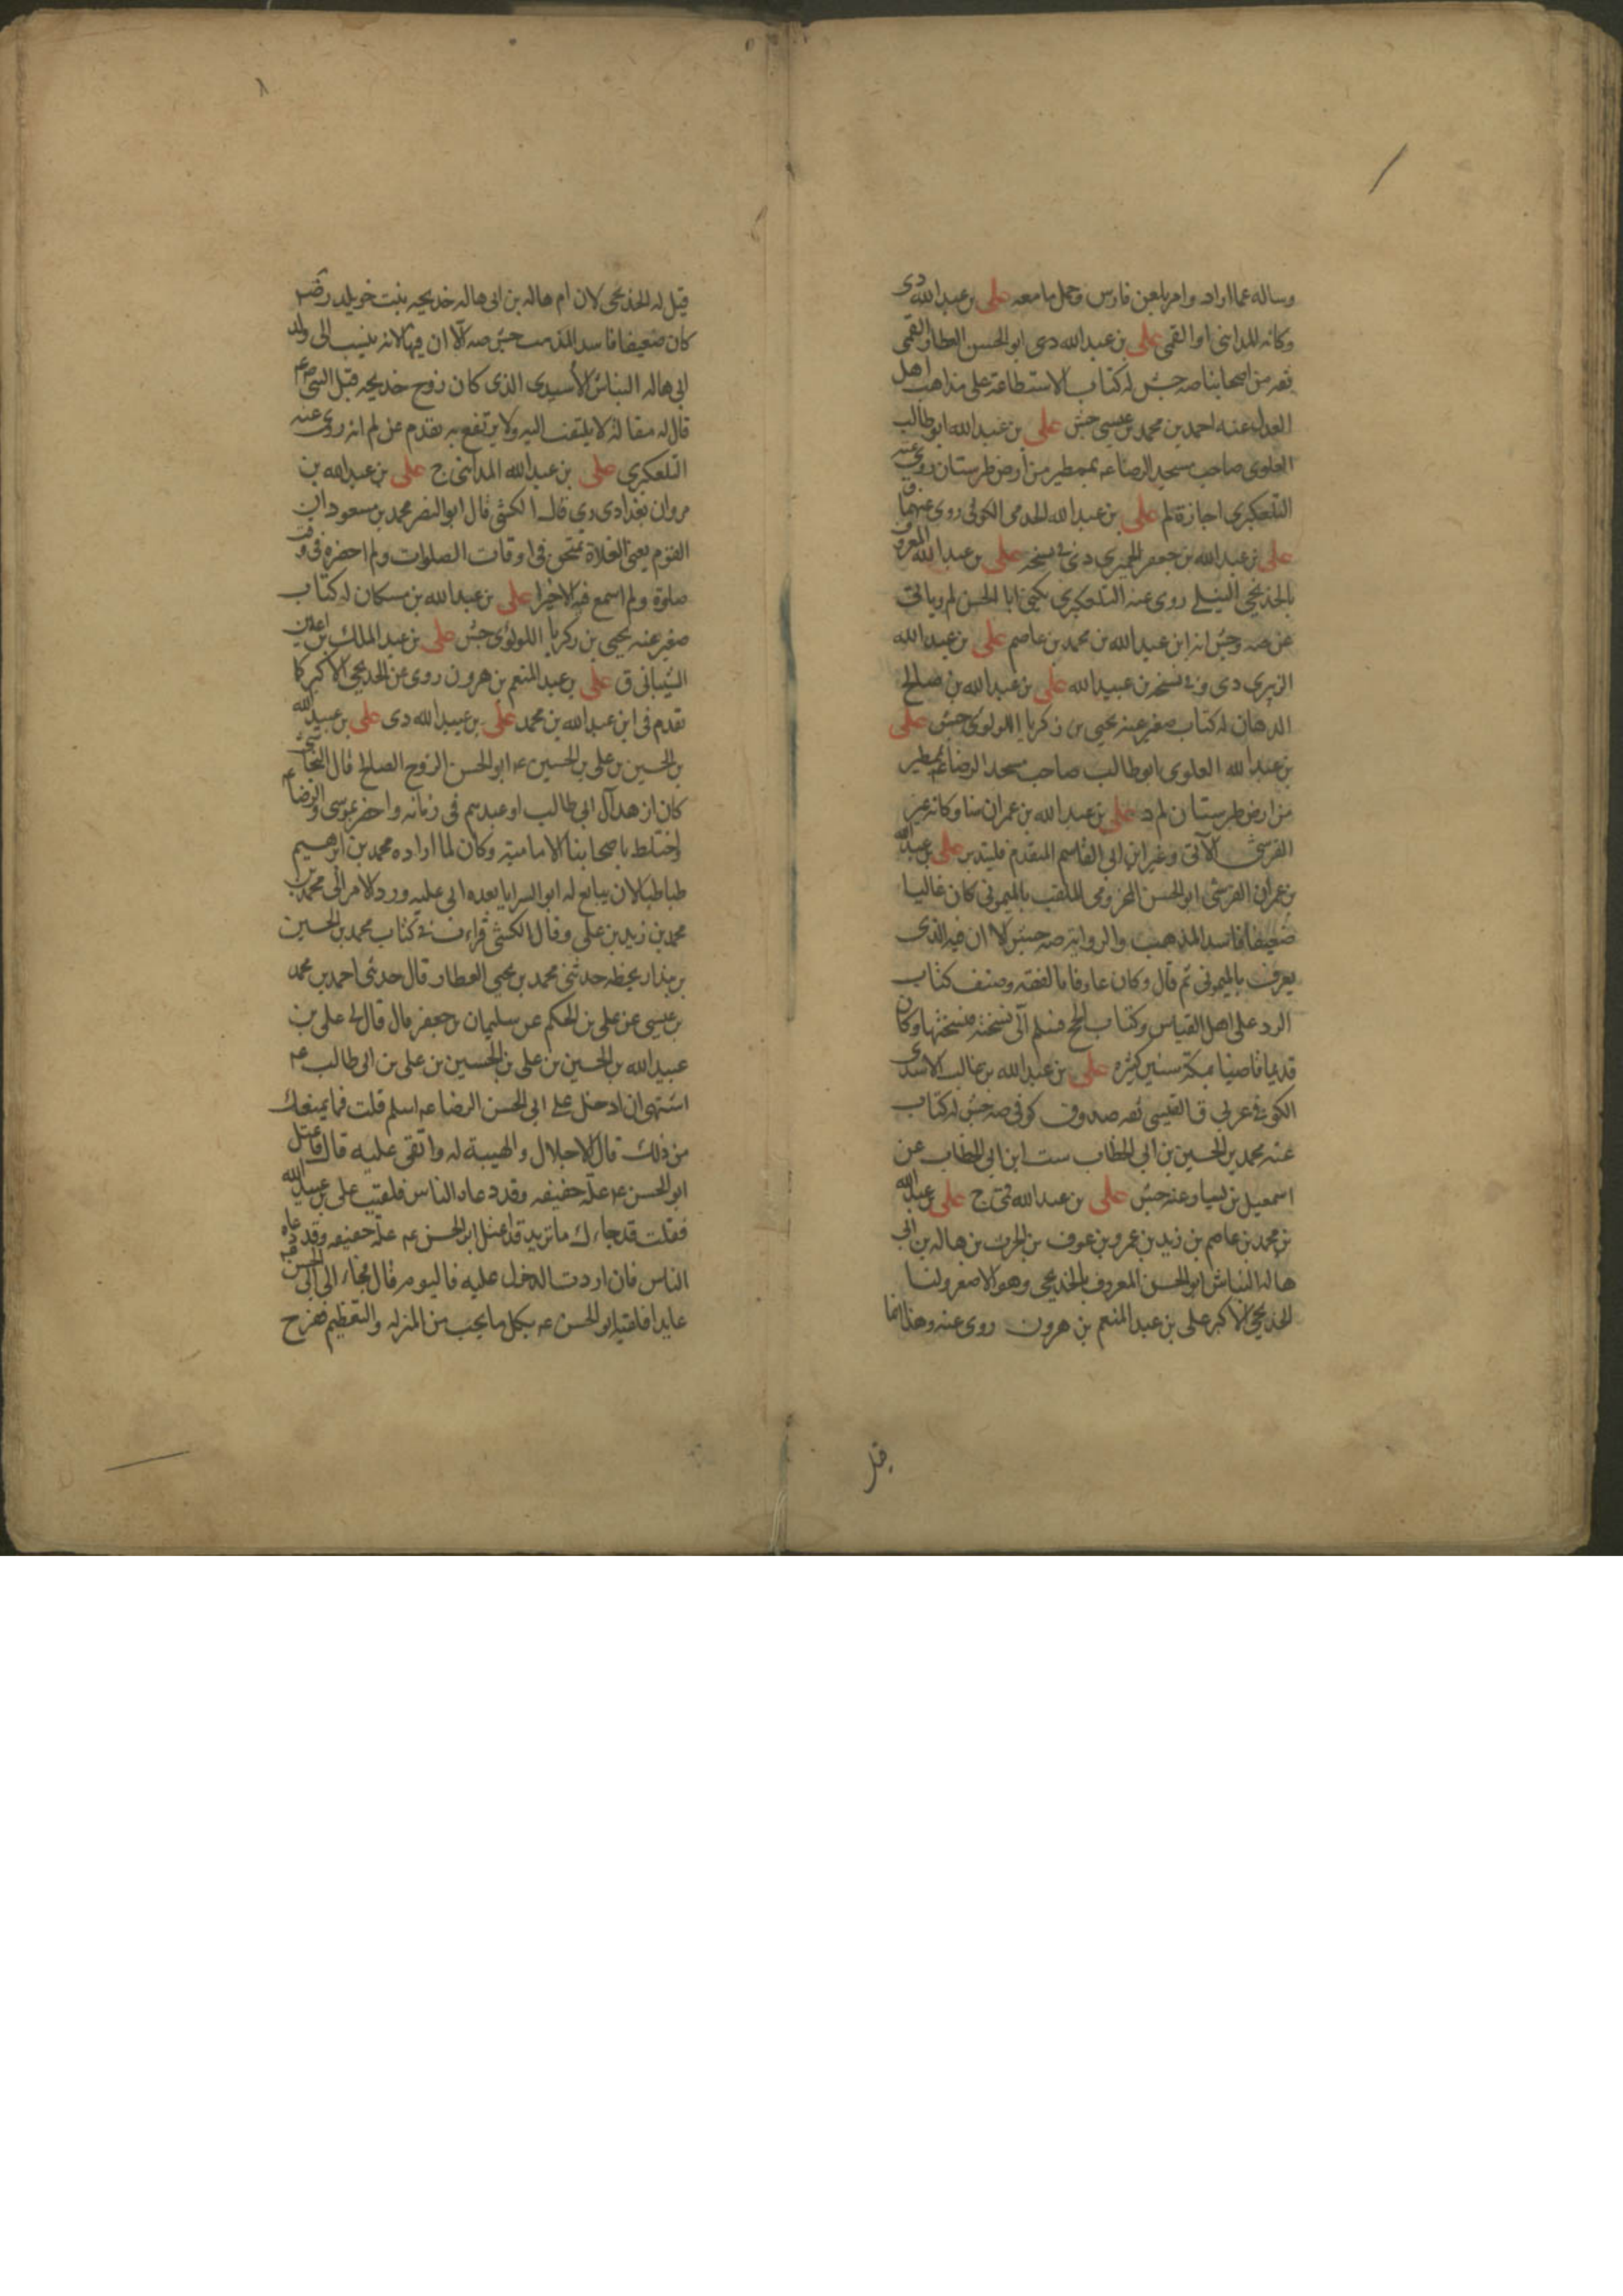 وساله عما اراد وامر بلعن فارس وحمل ما معه علی بن عبدالله دی
وكانه المدائنی او القمی علی بن عبدالله دی ابو الحسن العطار القمی
ثقه من اصحابنا صه جش له كتاب الاستطاعة علی مذاهب اهل
العدل عنه احمد بن محمد بن عیسی جش علی بن عبدالله ابو طالب
العلوی صاحب مسجد الرضا عه بممطیر من ارض طبرستان روی عنه
التلعكبری اجازة لم علی بن عبدالله الكوفی روی عنهما ق
علی بن عبدالله بن جعفر الحمیری دی فی نسخة علی بن عبدالله المعروف
بالخدیجی النیلی روی عنه التلعكبری یكنی ابا الحسن لم ویاتی
عن صه وجش انه ابن عبیدالله بن محمد بن عاصم علی بن عبدالله
الزبیری دی وفی نسخه بن عبیدالله علی بن عبدالله بن صالح
الدهان له كتاب صغیر عنه یحیی بن زكریا اللولوئی جش علی
بن عبدالله العلوی ابو طالب صاحب مسجد الرضا عه بممطیر
من ارض طبرستان لم د علی بن عبدالله بن عمران منا وكانه غیر
القرشی الآتی وغیر ابن ابی القاسم المتقدم فلیتدبر علی بن عبدالله
بن عمران القرشی ابو الحسن المخزومی الملقب بالمیمونی كان غالیا
ضعیفا فاسد المذهب والروایة صه جش الا ان فیه الذی
یعرف بالمیمونی ثم قال وكان عارفا بالفقه وصنف كتاب
الرد علی اهل القیاس وكتاب الحج فسلم الی نسخته فنسختها وكان
قدیما قاضیا بمكة سنین كثیره علی بن عبدالله بن غالب الاسدی
الكوفی عربی ق القیسی ثقه صدوق كوفی صه جش له كتاب
عنه محمد بن الحسین بن ابی الخطاب ست ابن ابی الخطاب عن
اسمعیل بن یسار عنه جش علی بن عبدالله قمی ج علی بن عبدالله
بن محمد بن عاصم بن زید بن عمرو بن عوف بن الحرث بن هاله بن ابی
هاله النباش ابو الحسن المعروف بالخدیجی وهو الاصغر ولنا
الخدیجی الاكبر علی بن عبد المنعم بن هرون روی عنه وهذا انما
قیل
قیل له الخدیجی لان ام هاله بن ابی هاله خدیجه بنت خویلد رضه
كان ضعیفا فاسد المذهب جش صه الّا ان فیها لانه ینسب الی ولد
ابی هاله النباش الأسیدی الذی كان زوج خدیجه قبل النبی ص
قال له مقالة لا یلتفت الیه ولا یرتفع به تقدم عن لم انه روی عنه
التلعكبری علی بن عبدالله المدائنی ج علی بن عبدالله بن
مروان بغدادی ری قال الكشی قال ابو النضر محمد بن مسعود ان
القوم یعنی الغلاة یمتحن فی اوقات الصلوات ولم احضره فی وقت
صلوة ولم اسمع فیه الا خیرا علی بن عبدالله بن مسكان له كتاب
صغیر عنه یحیی بن زكریا اللولوئی جش علی بن عبد الملك بن اعین
الشیبانی ق علی بن عبد المنعم بن هرون روی عن الخدیجی الاكبر كما
تقدم فی ابن عبدالله بن محمد علی بن عبیدالله دی علی بن عبیدالله
بن الحسین بن علی بن الحسین عه ابو الحسن الزوج الصالح قال النجاشی
كان ازهد آل ابی طالب واعبدهم فی زمانه واختص بموسی والرضا عه
واختلط باصحابنا الامامیة وكان لما اراده محمد بن ابراهیم
طباطبا لان یبایع له ابو السرایا بعده ابی علیه ورد الامر الی محمد بن
محمد بن زید بن علی وقال الكشی قرات فی كتاب محمد بن الحسین
بن بندار بخطه حدثنی محمد بن یحیی العطار قال حدثنی احمد بن محمد
بن عیسی عن علی بن الحكم عن سلیمان بن جعفر قال قال لی علی بن
عبیدالله بن الحسین بن علی بن الحسین بن علی بن ابی طالب عه
اشتهی ان ادخل علی ابی الحسن الرضا عه اسلم قلت فما یمنعك
من ذلك قال الاجلال والهیبة له واتقی علیه قال فاعتل
ابو الحسن عه علّة خفیفه وقد عاده الناس فلقیت علی بن عبیدالله
فقلت قد جاءك ما ترید قد اعتل ابو الحسن عه علة خفیفه وقد عاده
الناس فان اردت الدخول علیه فالیوم قال فجاء الی ابی الحسن عه
عایدا فلقیه ابو الحسن عه بكل ما یحب من المنزله والتعظیم ففرح